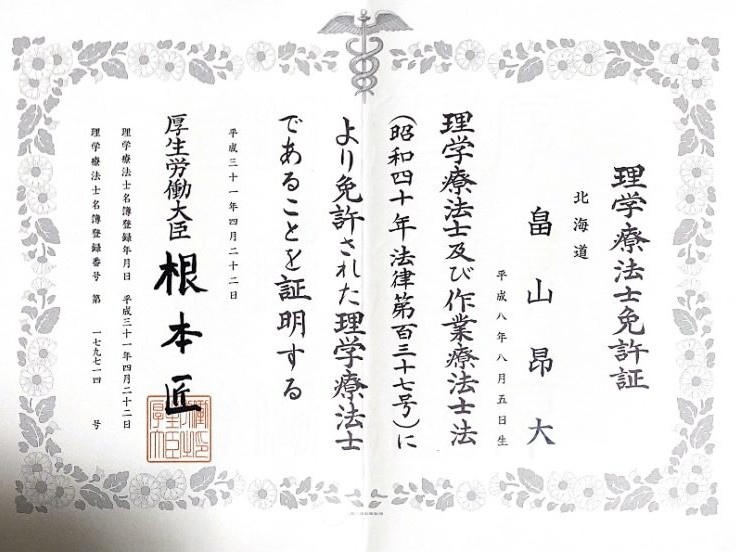 理学療法士免許証
北海道
畠山昂大
平成八年八月五日生
理学療法士及び作業療法士法
(昭和四十年法律第百三十七号)に
より免許された理学療法士
であることを証明する
平成三十一年四月二十二日
厚生労働大臣 根本匠
理学療法士名簿登録年月日 平成三十一年四月二十二日
理学療法士名簿登録番号 第 一七九七一四 号